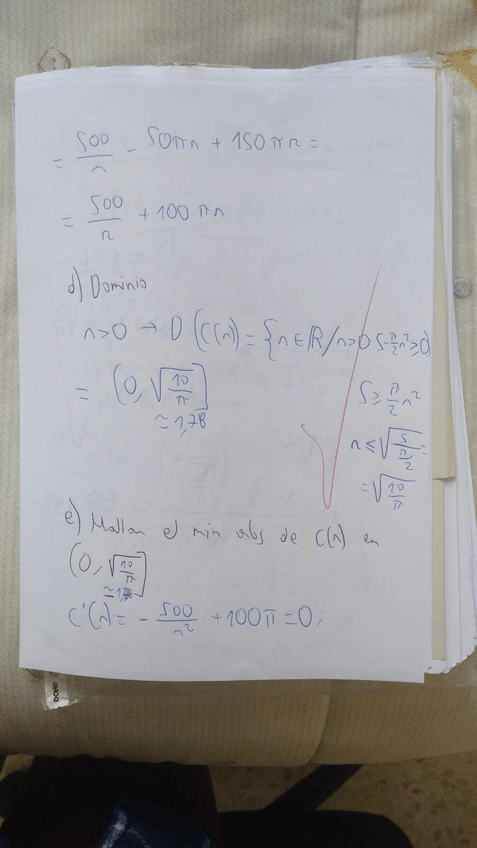 = 500/r - 50πr + 150πr =
= 500/r + 100πr
d) Dominio
r>0 → D(C(r)) = {r∈ℝ/r>0 5-π/2 r²≥0}
= (0, √(10/π)]
≃1,78
5 ≥ π/2 r²
r ≤ √(5/(π/2)) =
= √(10/π)
e) Hallar el min abs de C(r) en
(0, √(10/π)]
≃1,78
C'(r) = - 500/r² + 100π = 0;